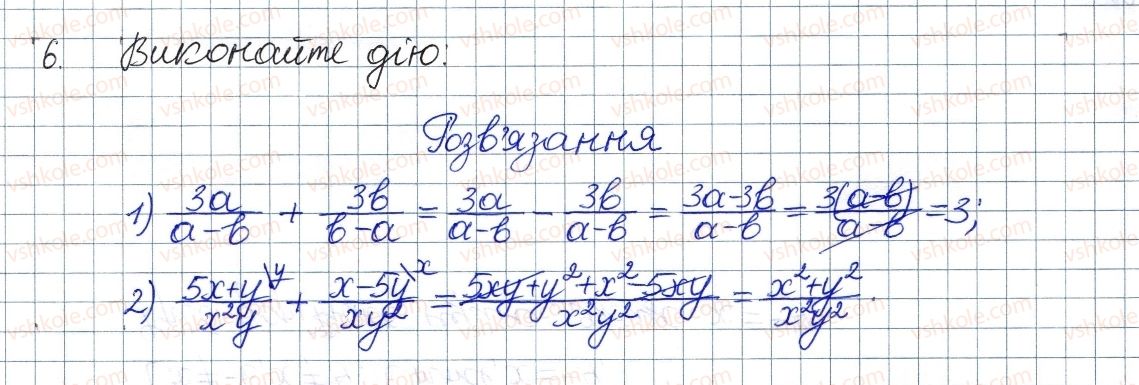 6. Виконайте дію:
Розв'язання
1) \frac{3a}{a-b} + \frac{3b}{b-a} = \frac{3a}{a-b} - \frac{3b}{a-b} = \frac{3a-3b}{a-b} = \frac{3(a-b)}{a-b} = 3;
2) \frac{5x+y}{x^2y}^{\backslash y} + \frac{x-5y}{xy^2}^{\backslash x} = \frac{5xy+y^2+x^2-5xy}{x^2y^2} = \frac{x^2+y^2}{x^2y^2}.